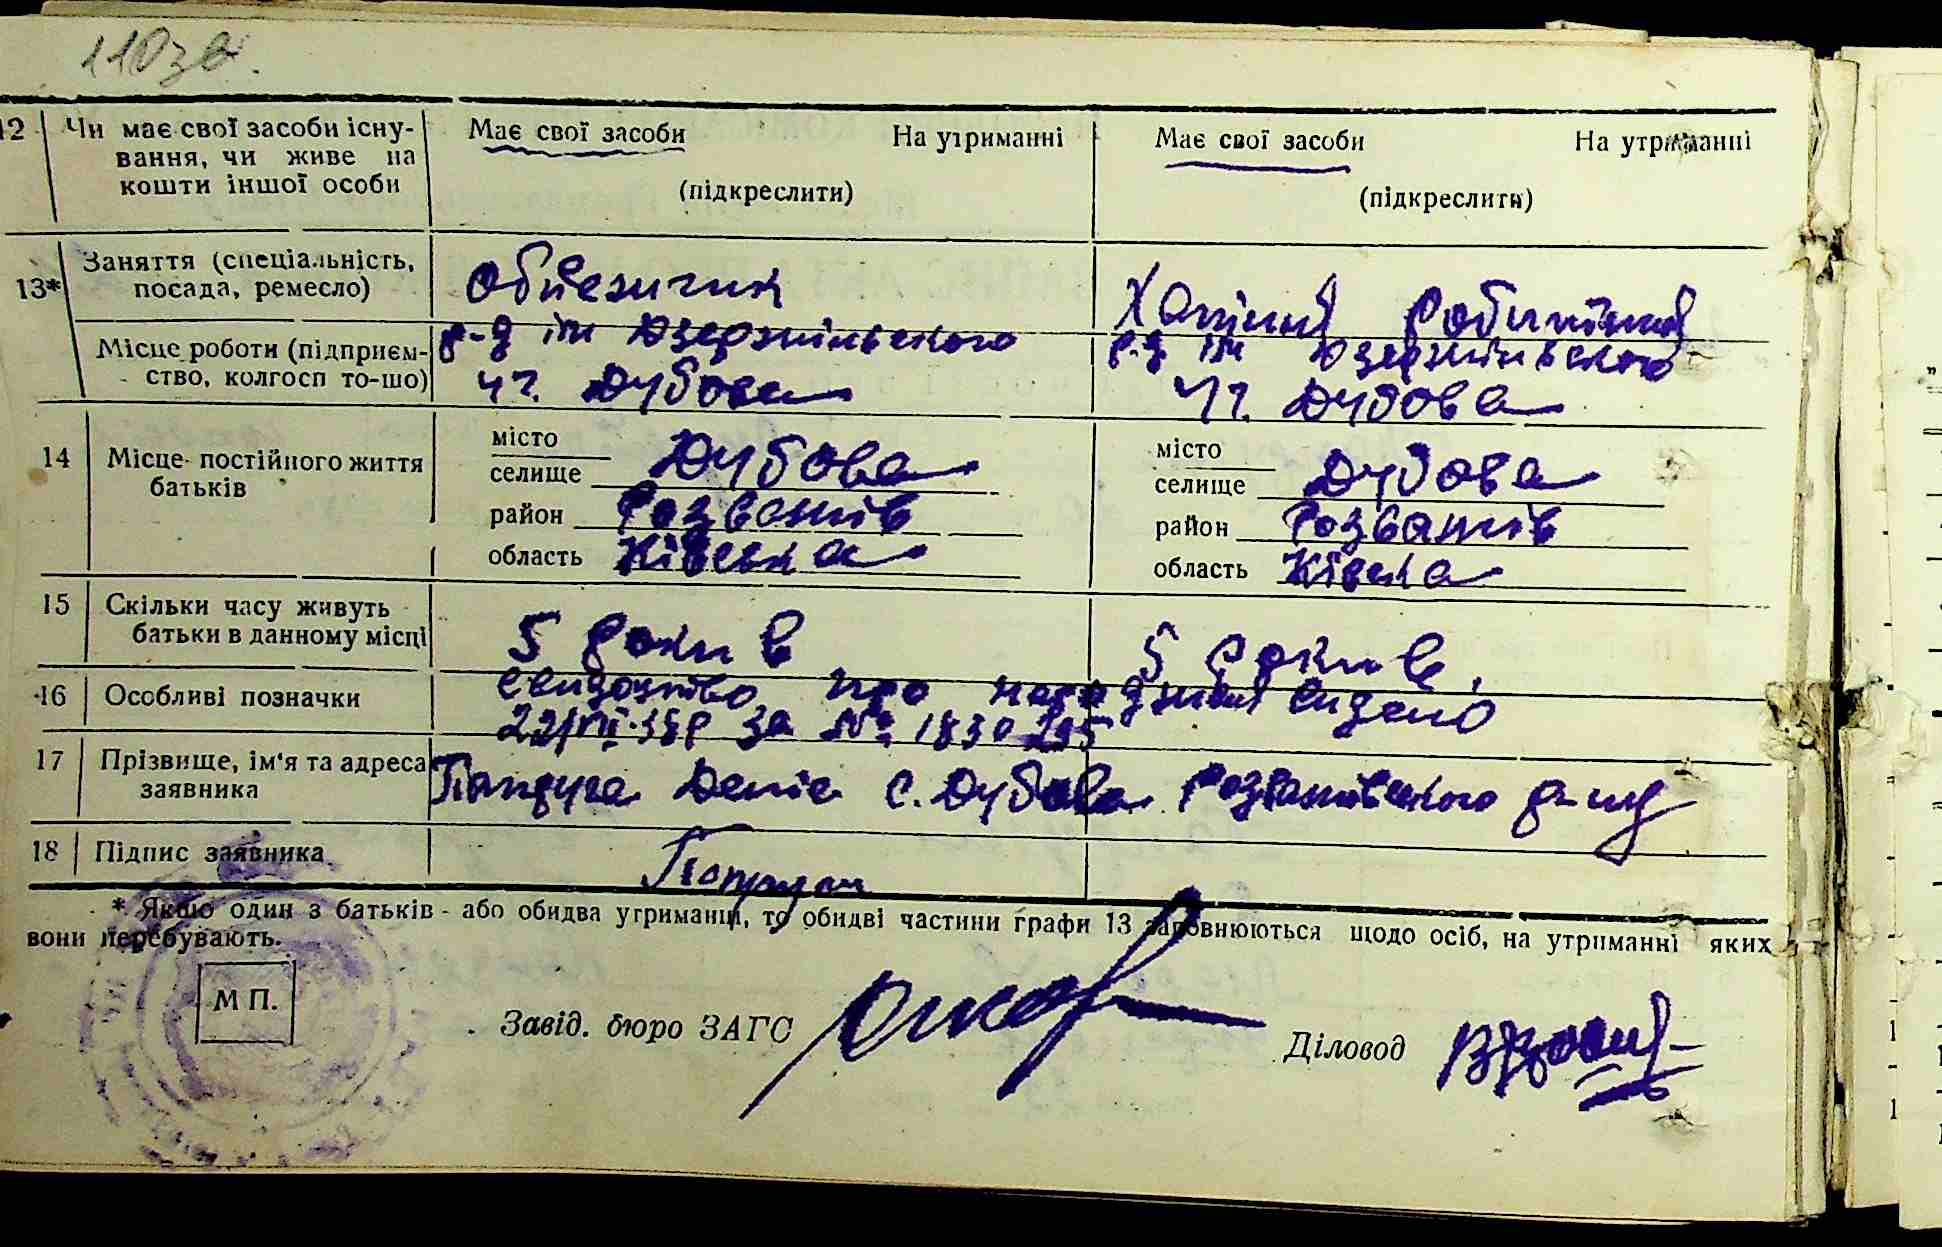 110зв.
12 Чи має свої засоби існу-
вання, чи живе на
кошти іншої особи
Має свої засоби На утриманні
(підкреслити)
Має свої засоби На утриманні
(підкреслити)
13* Заняття (спеціальність,
посада, ремесло)
Обиезчик
Хатній робитний
Місце роботи (підприєм-
ство, колгосп то-що)
р-д ім Дзержинського
уч. Дубова
р-д ім Дзержинського
уч. Дубова
14 Місце постійного життя
батьків
місто
селище Дубова
район Розважів
область Київська
місто
селище Дубова
район Розважів
область Ківска
15 Скільки часу живуть
батьки в данному місці
5 років
5 років
16 Особливі позначки
свидоцтво про народження видано
22/VII-38р за № 1830295
17 Прізвище, ім'я та адреса
заявника
Денис с. Дубова Розважівського р-ну
18 Підпис заявника
* Якщо один з батьків - або обидва утриманці, то обидві частини графи 13 заповнюються щодо осіб, на утриманні яких
вони перебувають.
М П.
Завід. бюро ЗАГС
Діловод